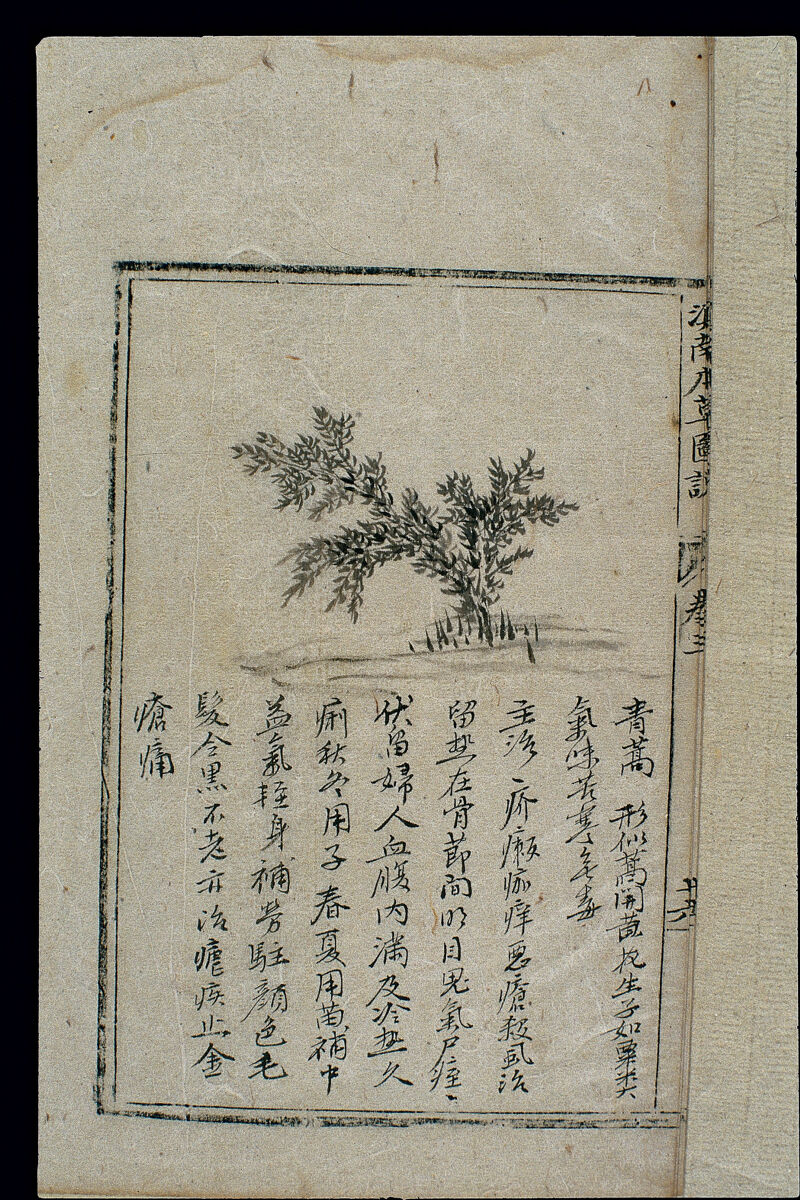 青蒿 形似蒿開黃花生子如粟米大
氣味苦寒無毒
主治 疥瘢痂痒惡瘡殺虱治
留热在骨節間明目鬼氣尸疰〻
伏留婦人血腹內滿及冷热久
痢秋冬用子春夏用苗補中
益氣輕身補勞駐顏色毛
髮令黑不老亦治瘧疾止金
瘡痛
滇南本草圖說 卷三